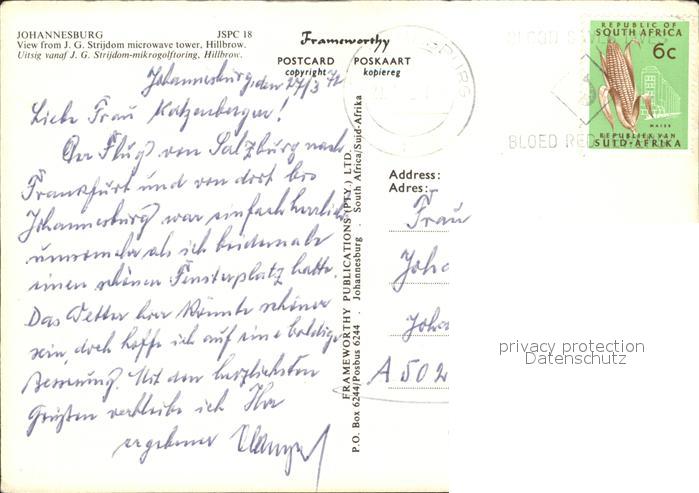 JOHANNESBURG JSPC 18
View from J. G. Strijdom microwave tower, Hillbrow.
Uitsig vanaf J. G. Strijdom-mikrogolftoring, Hillbrow.
Frameworthy
POSTCARD POSKAART
copyright kopiereg
BLOOD SAVES LIVES
BLOED RE
REPUBLIC OF
SOUTH AFRICA
6c
MAIZE
REPUBLIEK VAN
SUID-AFRIKA
Johannesburg, den 27/3 72
Liebe Frau Katzenberger!
Der Flug von Salzburg nach
Frankfurt und von dort bis
Johannesburg war einfach herrlich
umsomehr als ich beidemale
einen schönen Fensterplatz hatte.
Das Wetter hier könnte schöner
sein, doch hoffe ich auf eine baldige
Besserung. Mit den herzlichsten
Grüßen verbleibe ich Ihr
ergebener
FRAMEWORTHY PUBLICATIONS (PTY.) LTD.
P.O. Box 6244/Posbus 6244 . Johannesburg . South Africa/Suid-Afrika
Address:
Adres:
Frau
Joh
Joha
A 502
privacy protection
Datenschutz